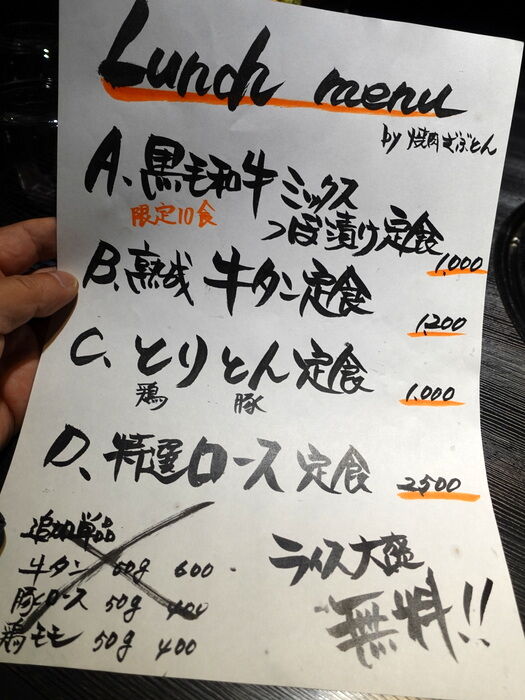 Lunch menu
by 焼肉ざぶとん
A、黒毛和牛ミックス
限定10食
つぼ漬け定食
1,000
B、熟成 牛タン定食
1,200
C、とりとん定食
鶏 豚
1,000
D、特選ロース定食
2,500
追加単品
牛タン 50g 600
豚ロース 50g 400
鶏モモ 50g 400
ライス大盛
無料!!